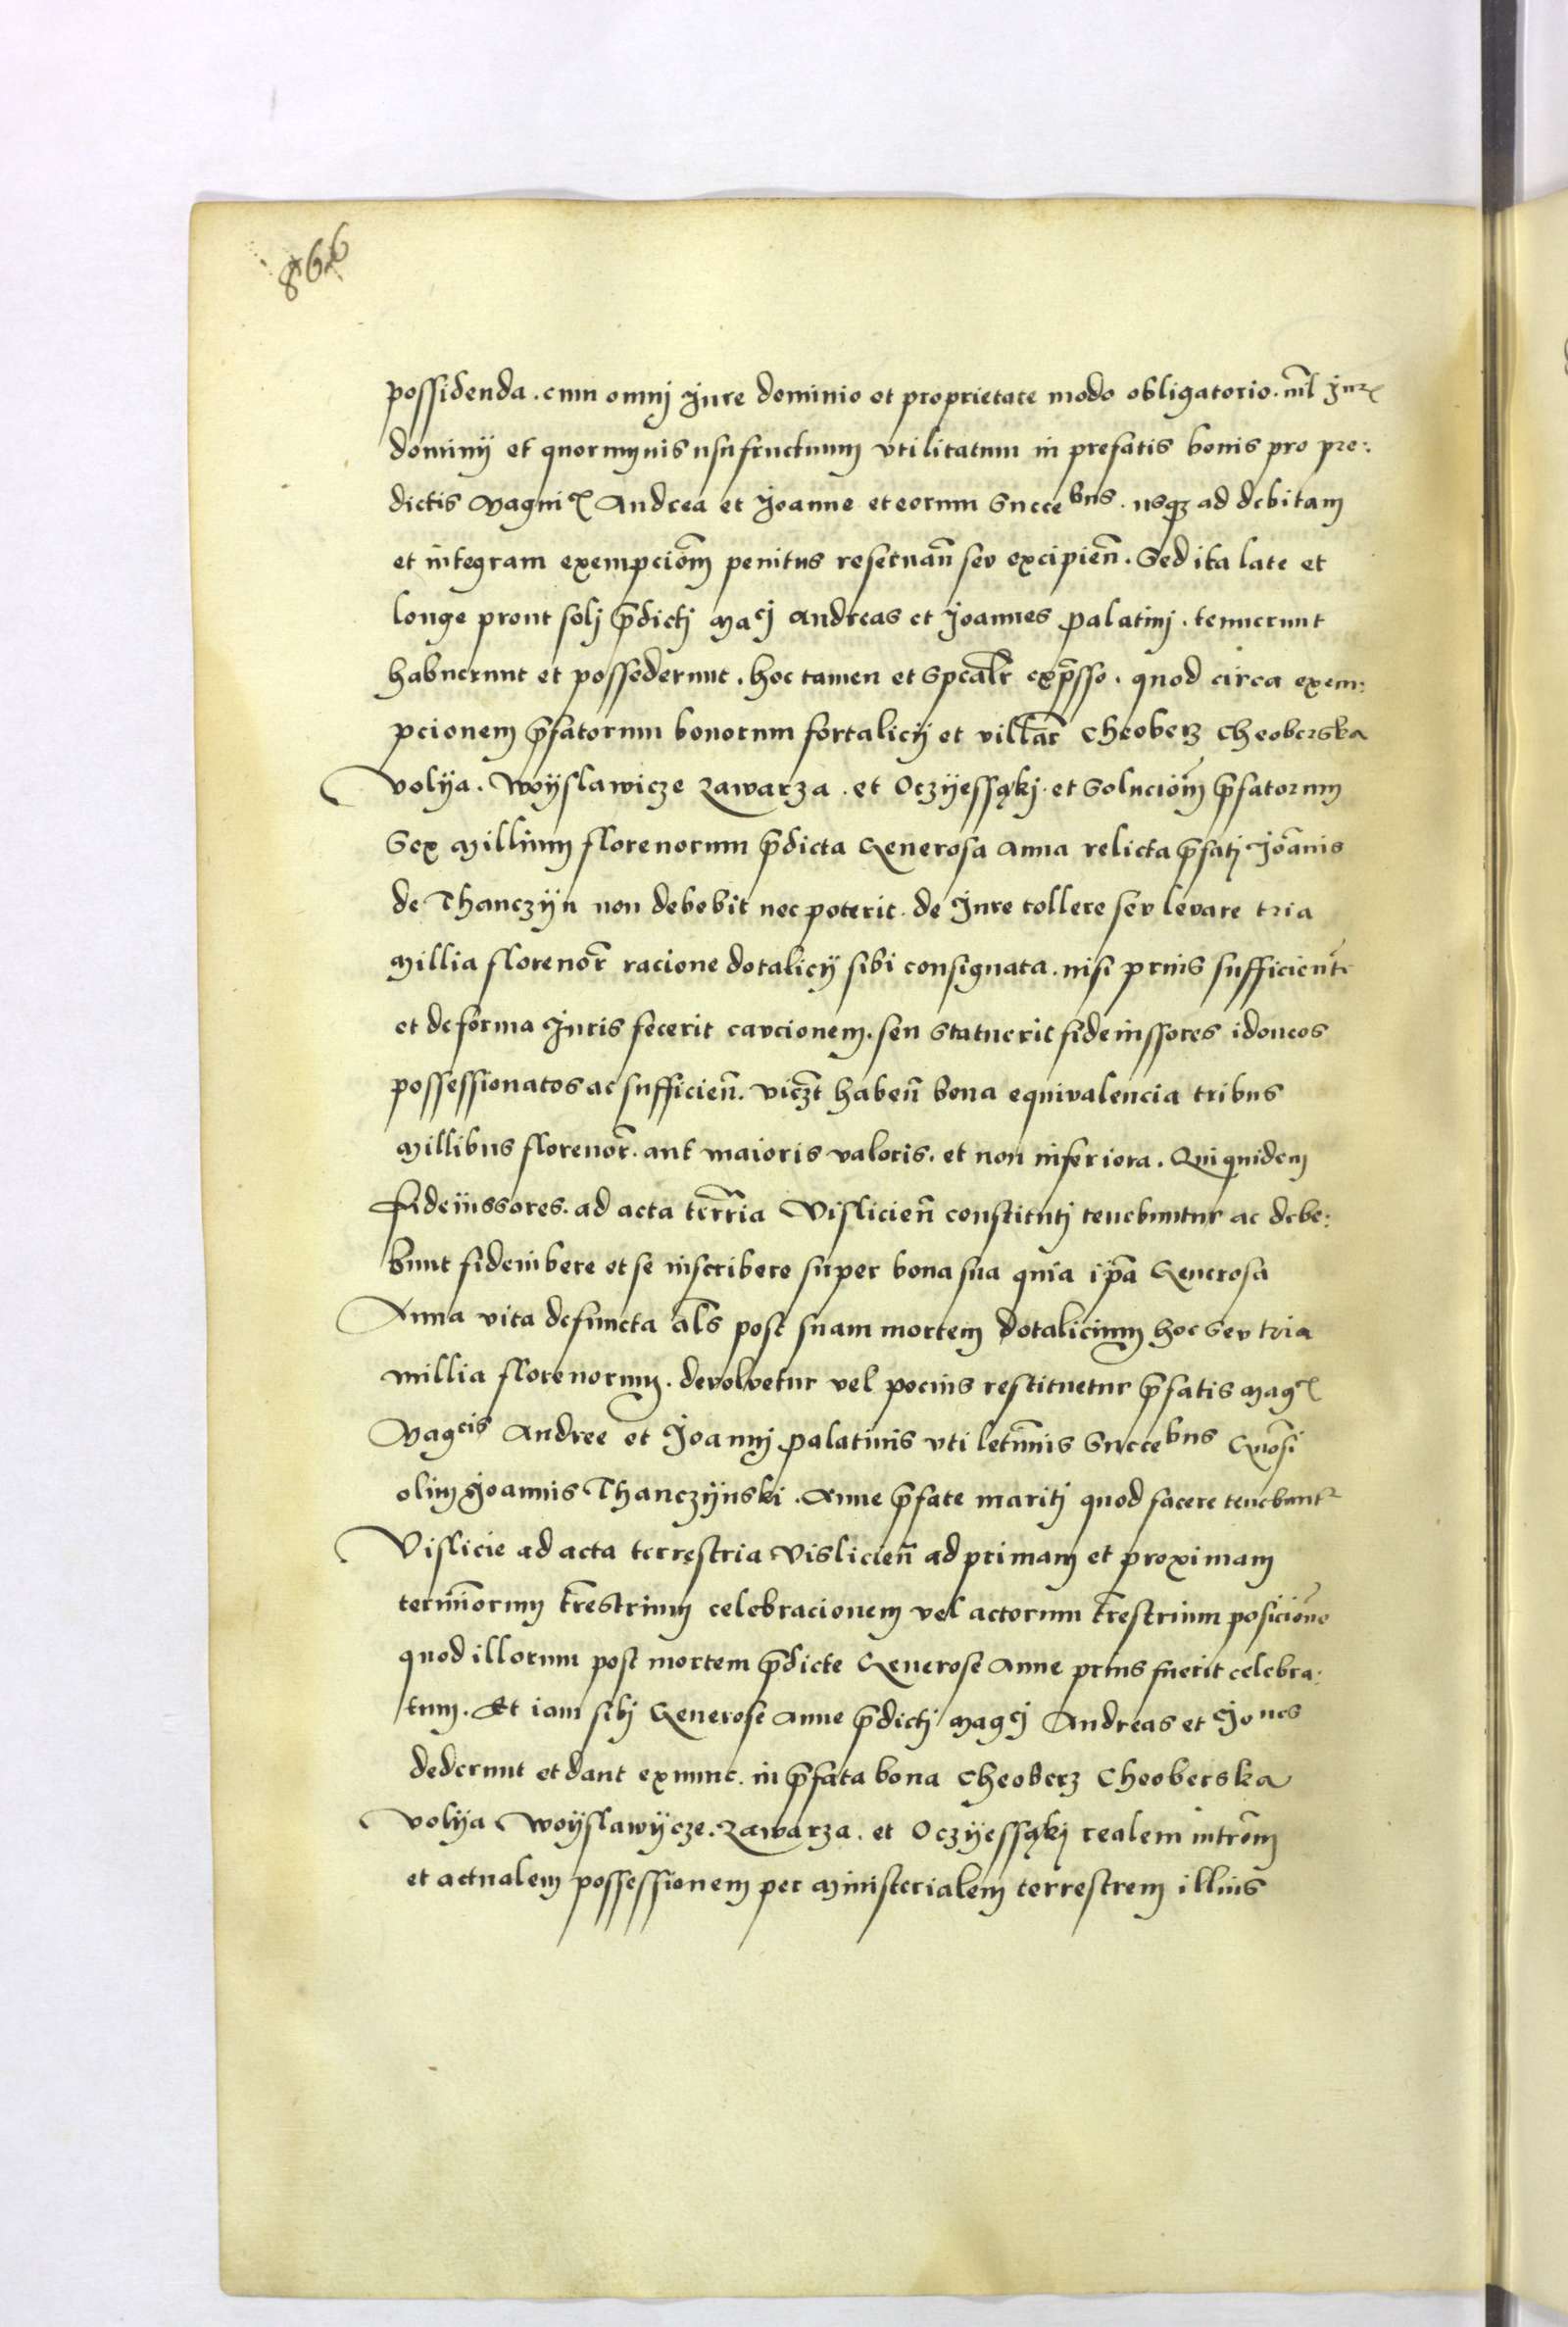 866
possidenda. cum omnj Jure dominio et proprietate modo obligatorio. nil Jur
dominij et quormuis usufructuum vtilitatum in prefatis bonis pro pre:
dictis Magni Andrea et Joanne et eorum Succebus. usqz ad debitam
et integram exempciom penitus reseruan sev excipien. Sed ita late et
longe prout solj pdictj Macj Andreas et Joannes palatinj. tenuerunt
habuerunt et possederunt. hoc tamen et Spcalr expsso. quod circa exem:
pcionem pfatorum bonorum fortalicij et villar Cheoberz Cheoberska
Volya. Woyslawicze Zawarza. et Oczyessąkj. et Soluciom pfatorum
Sex Millium florenorum pdicta Generosa Anna relicta pfatj Joanis
de Thanczyn non debebit nec poterit. de Jure tollere sev levare tria
Millia florenor racione dotalicij sibi consignata. nisi prius sufficient
et de forma Juris fecerit cavcionem. seu Statuerit fideiussores idoneos
possessionatos ac sufficien. viczt haben bona equivalencia tribus
Millibus florenor. aut maioris valoris. et non inferiora. Qui quidem
Fideiussores. ad acta terria Vislicien constitutj tenebuntur ac debe:
bunt fideiubere et se inscribere super bona sua quia ipa Generosa
Anna vita defuncta als post suam mortem dotalicium hoc Sev tria
millia florenorum. devolvetur vel pocius restituetur pfatis Mag
Magcis Andree et Joannj palatinis vti letimis Succebus Gnosi
olim Joannis Thanczynski. Anne pfate maritj quod facere tenebunt
Vislicie ad acta terrestria Vislicien ad primam et proximam
terminorum trestrium celebracionem vel actorum trestrium posicione
quod illorum post mortem pdicte Generose Anne prius fuerit celebra:
tum. Et iam sibj Generose Anne pdictj Magcj Andreas et Jones
dederunt et dant exnunc. in pfata bona Cheoberz Cheoberska
Volya Woyslawycze. Zawarza. et Oczyessąkj realem introm
et actualem possessionem per Ministerialem terrestrem illius